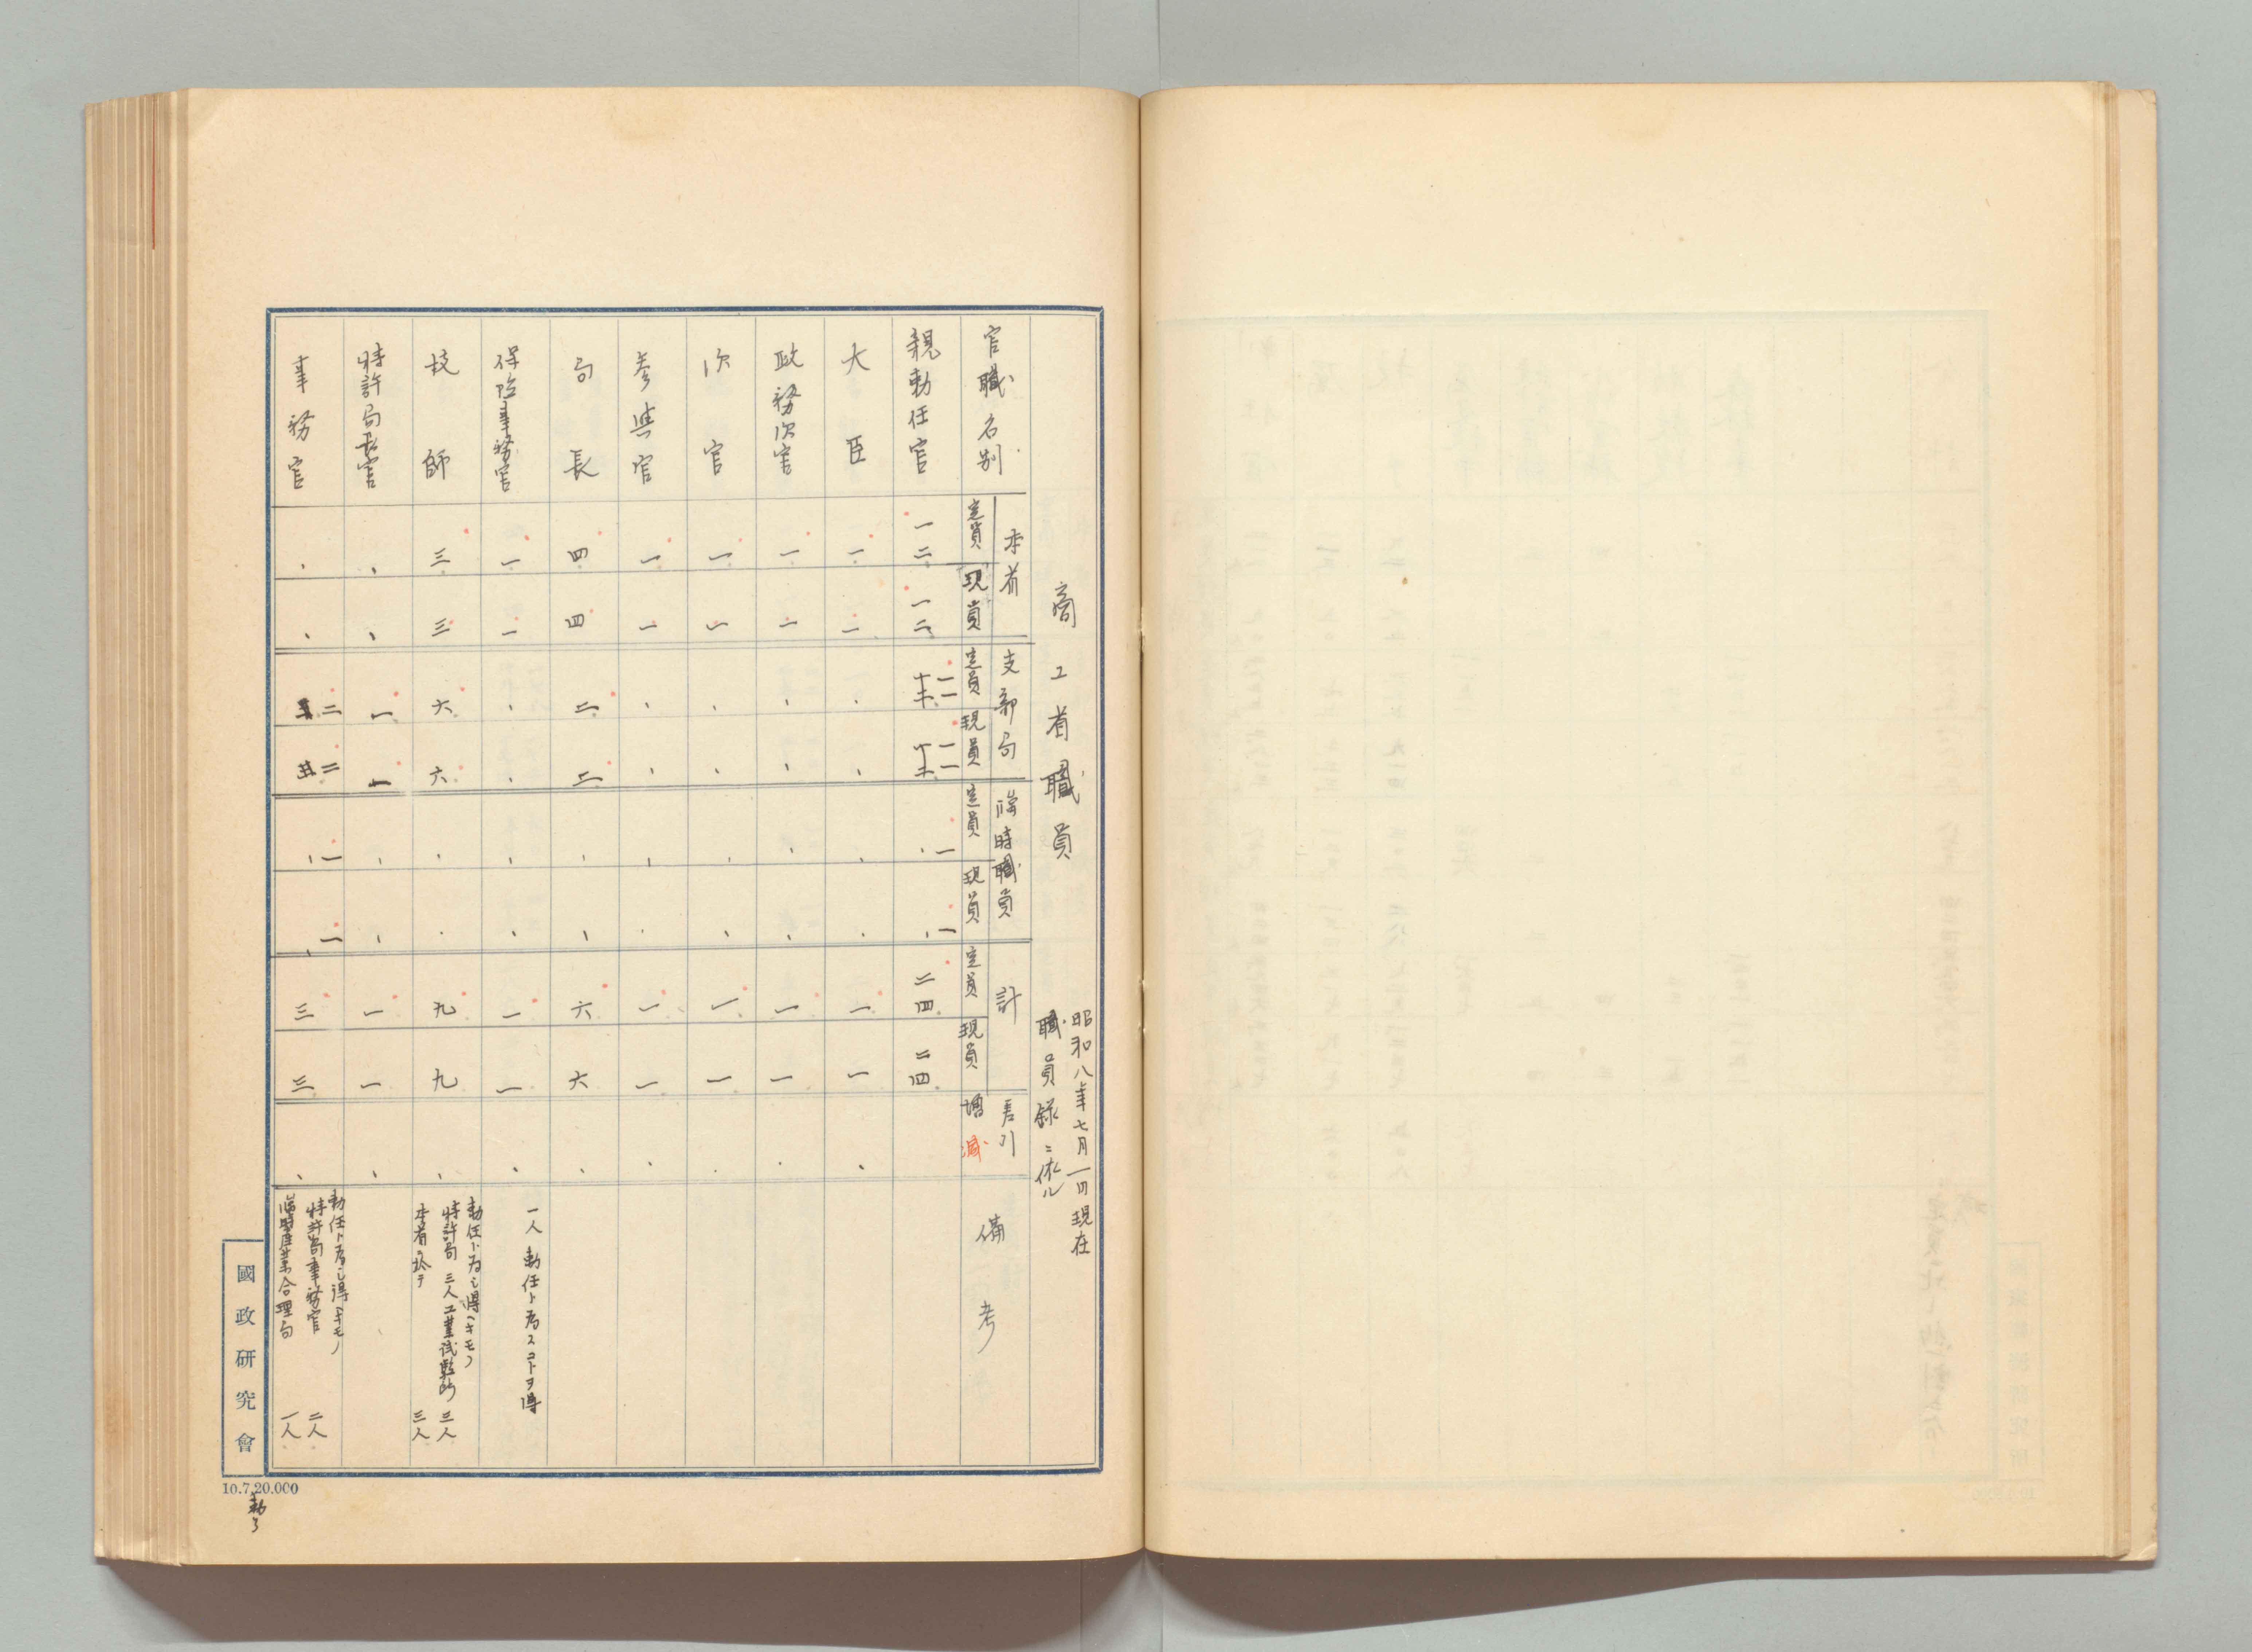 商工省職員
昭和八年七月一日現在
職員録ニ依ル
官職名別
本省
定員
現員
支部局
定員
現員
臨時職員
定員
現員
計
定員
現員
差引
増
減
備考
親勅任官
一二
一二
一一
一一
一
一
二四
二四
大臣
一
一
一
一
政務次官
一
一
一
一
次官
一
一
一
一
参与官
一
一
一
一
局長
四
四
二
二
六
六
保険事務官
一
一
一
一
一人勅任ト為スコトヲ得
技師
三
三
六
六
九
九
勅任ト為シ得ベキモノ
特許局 三人 工業試験所 三人
本省ニ於テ 三人
特許局長官
一
一
一
一
事務官
二
二
一
一
三
三
勅任ト為シ得ベキモノ
特許局事務官 二人
臨時産業合理局 一人
國政研究會
10.7.20.000